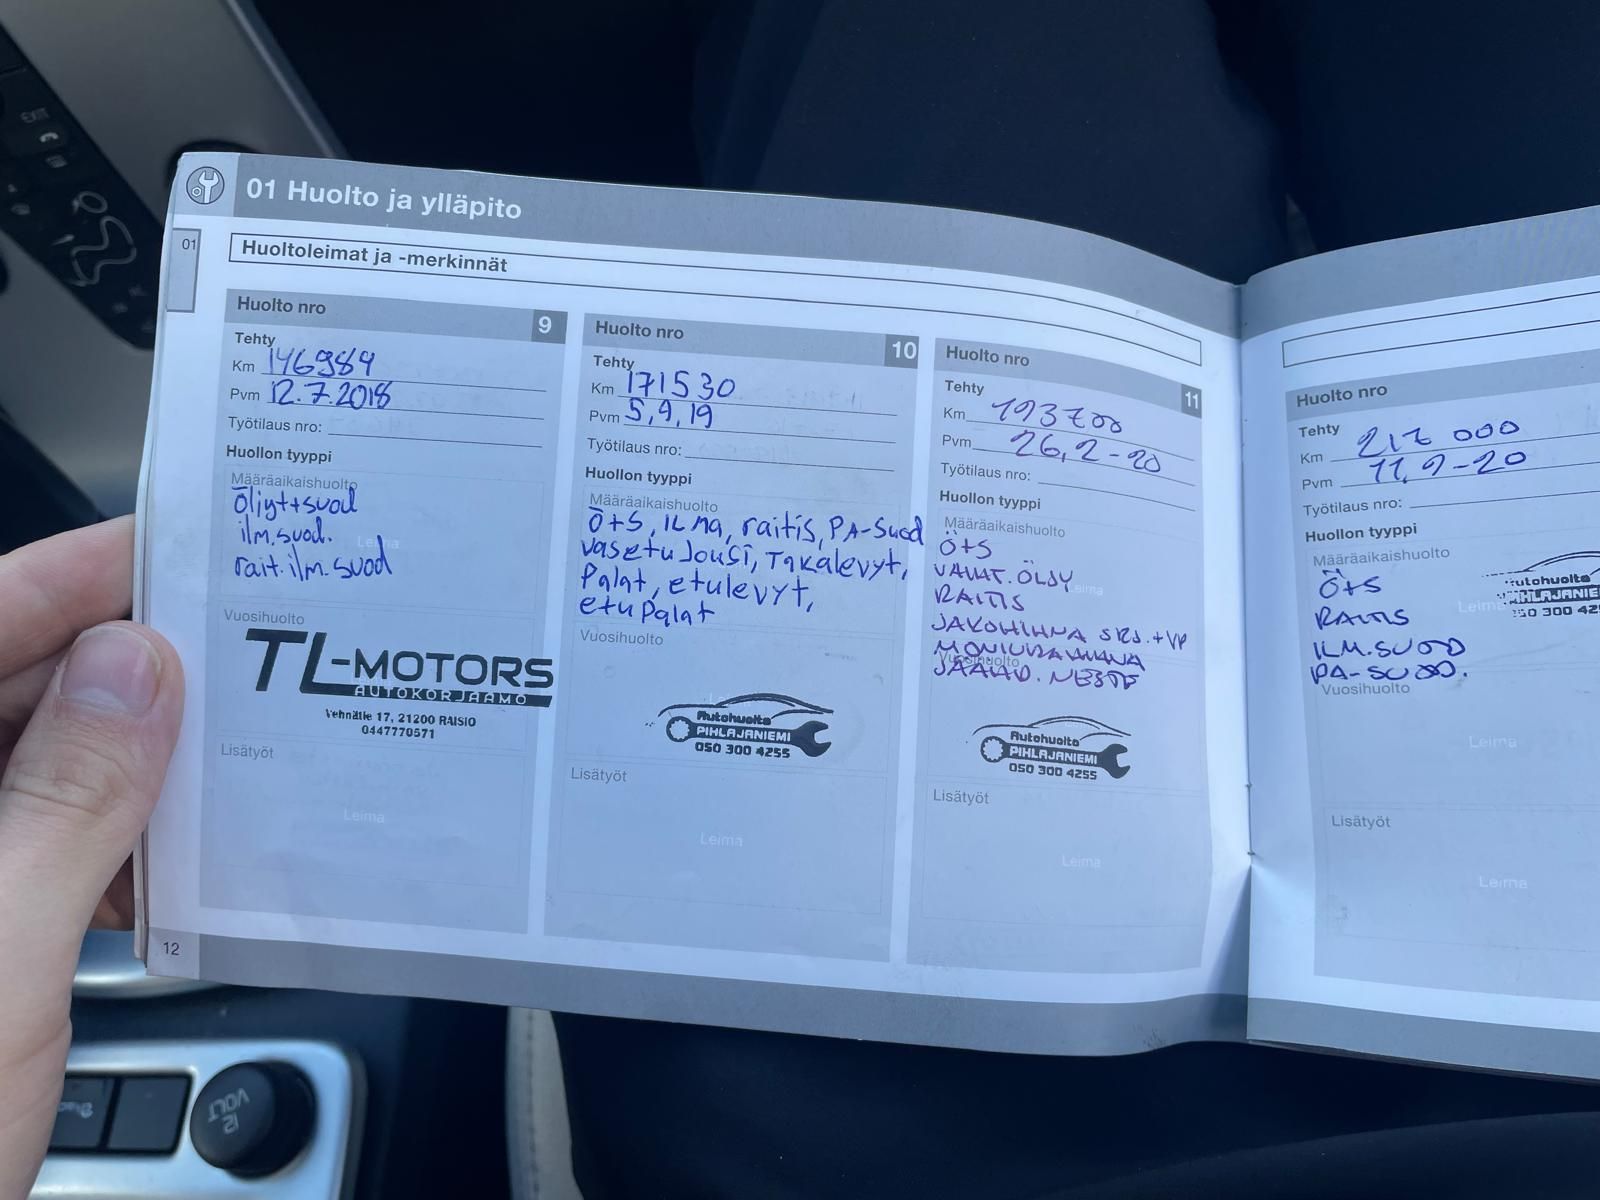 01 Huolto ja ylläpito
01
Huoltoleimat ja -merkinnät
Huolto nro 9
Tehty
Km 146984
Pvm 12.7.2018
Työtilaus nro:
Huollon tyyppi
Määräaikaishuolto
öljyt+suod
ilm.suod.
Leima
rait.ilm.suod
Vuosihuolto
TL-MOTORS
AUTOKORJAAMO
Vehnätie 17, 21200 RAISIO
0447770571
Lisätyöt
Leima
12
Huolto nro 10
Tehty
Km 171530
Pvm 5,9,19
Työtilaus nro:
Huollon tyyppi
Määräaikaishuolto
Ö+S, ILMA, raitis, PA-Suod
vasetuJousi, Takalevyt,
Palat, etulevyt,
etuPalat
Vuosihuolto
Leima
Autohuolto
PIHLAJANIEMI
050 300 4255
Lisätyöt
Leima
Huolto nro 11
Tehty
Km 193700
Pvm 26,2-20
Työtilaus nro:
Huollon tyyppi
Määräaikaishuolto
Ö+S
VAIHT.ÖLJY
Leima
RAITIS
JAKOHIHNA SRJ.+VP
MONIURAHIHNA
Vuosihuolto
JÄÄHD. NESTE
Autohuolto
PIHLAJANIEMI
050 300 4255
Lisätyöt
Leima
Huolto nro
Tehty
Km 217 000
Pvm 11,9-20
Työtilaus nro:
Huollon tyyppi
Määräaikaishuolto
Ö+S
RAITIS
Leima
ILM.SUOD
PA-SUOD.
Vuosihuolto
Leima
Lisätyöt
Leima
EXIT
12
VOLT